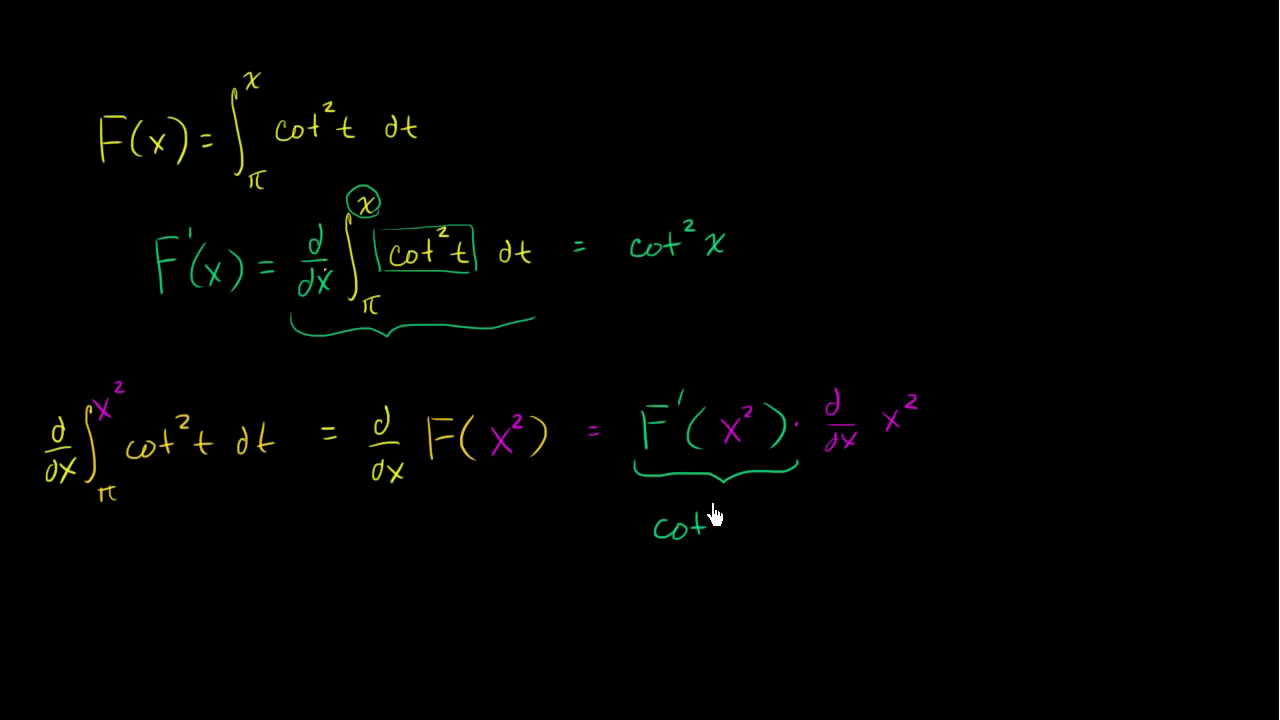 F(x) = ∫_π^x cot² t dt
F'(x) = d/dx ∫_π^x cot² t dt = cot² x
d/dx ∫_π^x² cot² t dt = d/dx F(x²) = F'(x²) · d/dx x²
cot